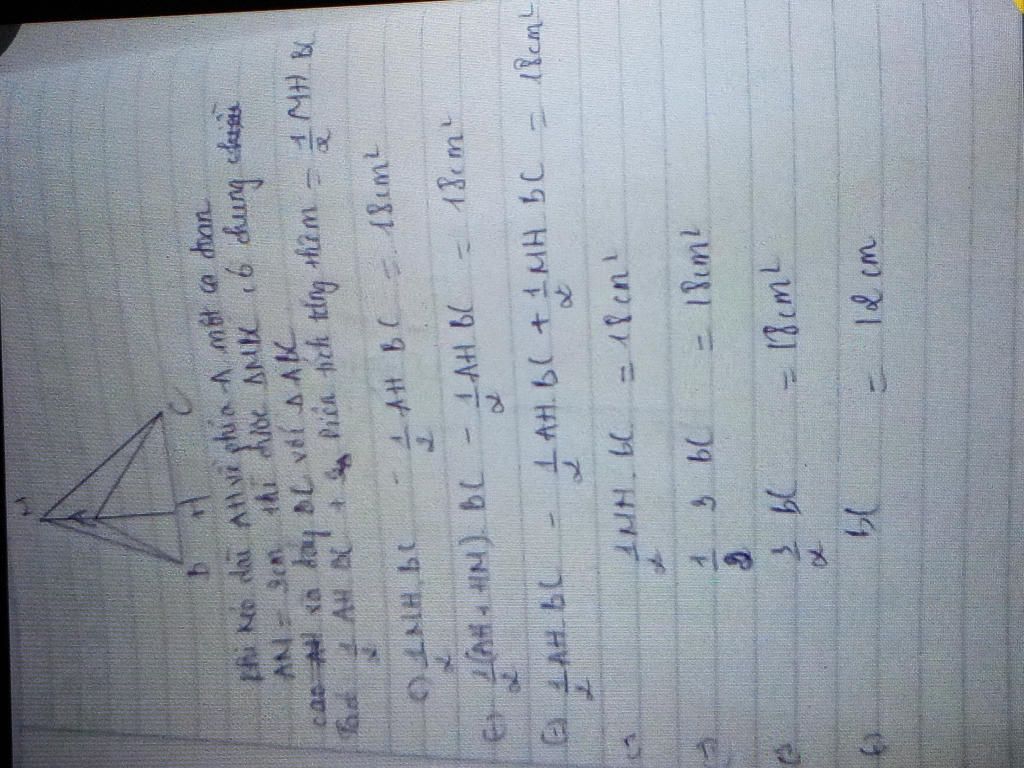 M
A
B
H
C
Khi kéo dài AH về phía A một đoạn
AM = 3cm thì được ΔMBC có chung chiều
cao AH và đáy BC với ΔABC
1/2 AH BC + Diện tích tăng thêm = 1/2 MH BC
(=) 1/2 MH. BC - 1/2 AH BC = 18cm²
(=) 1/2 (AH + HM). BC - 1/2 AH BC = 18cm²
(=) 1/2 AH.BC - 1/2 AH. BC + 1/2 MH BC = 18cm²
(=) 1/2 MH. BC = 18cm²
(=) 1/2 3 BC = 18cm²
(=) 3/2 BC = 18cm²
(=) BC = 12cm